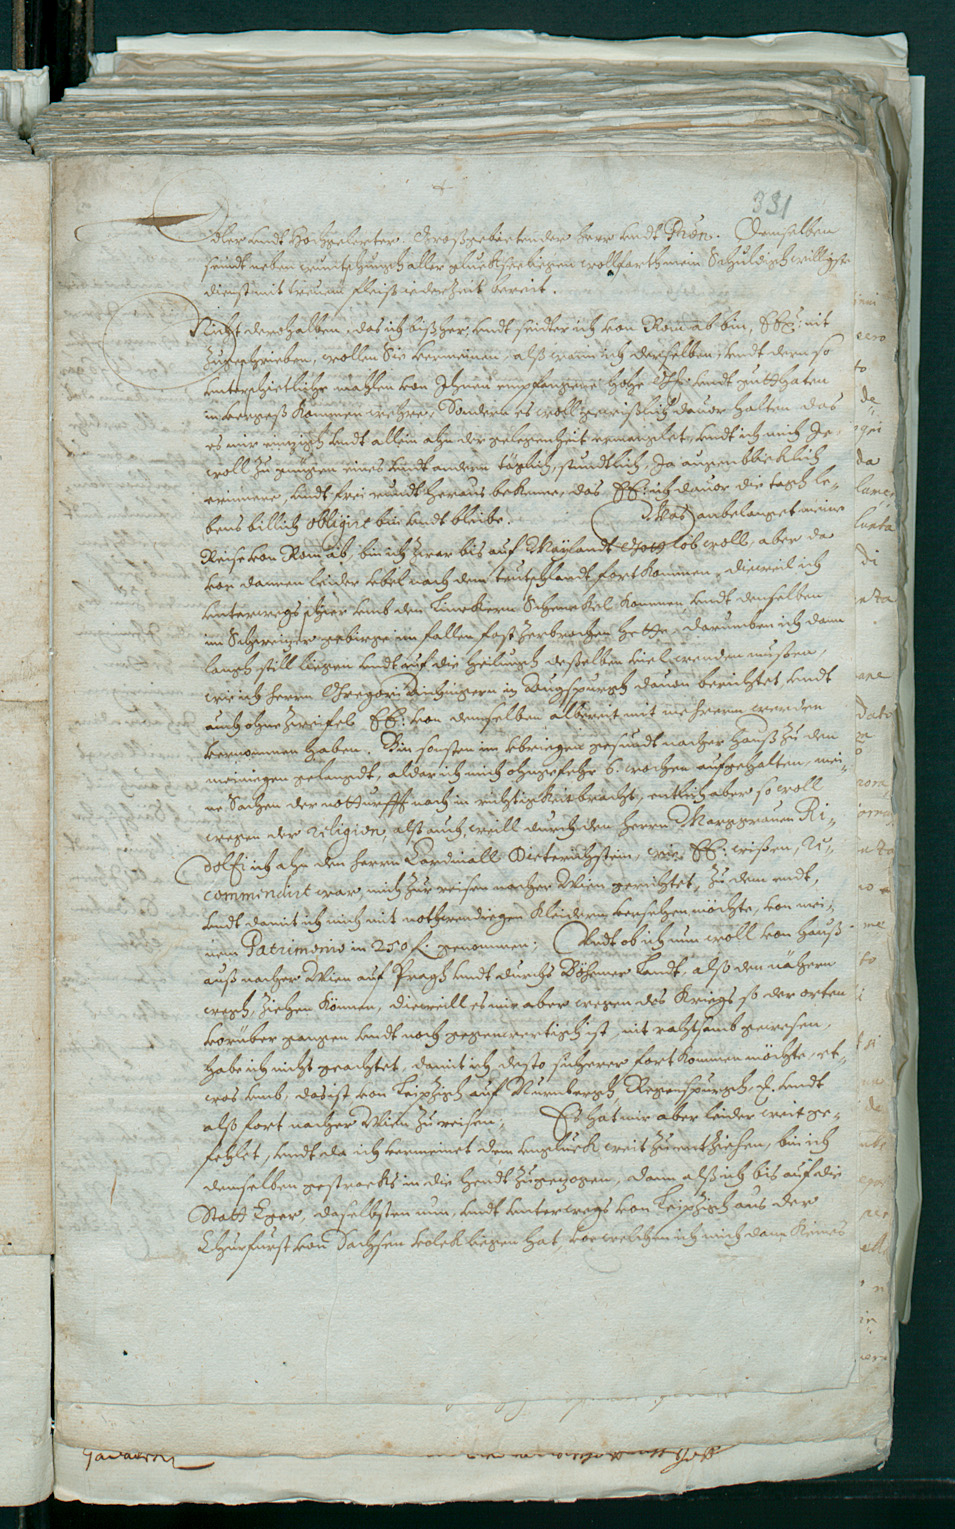 331
Edler undt Hochgelerter. Großgebietender Herr undt Patron. Demselben
seindt neben wuntschungh aller glückseeligen wollfarth mein Schuldigh willigste
dienst mit treuem fleiß iederzeit bereit.
Nicht derohalben, das ich bißher, undt seider ich von Rom ab bin, EE: nit
zugeschrieben, wollen Sie vermeinen, alß wann ich derselben, undt dern so
unterschietliche mahlen von Ihnen empfangene hohe Ehr undt gutthaten
in vergeß kommen wehre, Sondern es woll gewißlich davor halten, das
es mir einzigh undt allein ahn der gelegenheit ermanglet, undt ich mich Je
woll zu genügen eines undt andern täglich, stundtlich, Ja augenblicklich
erinnere, undt frei rundt heraus bekenne, das EE: ich davor die tagh le-
bens billich obligirt bin undt bleibe. Was anbelanget meine
Reise von Rom ab, bin ich zwar bis auf Maylandt Gott lob woll, aber da
von dannen leider übel nach dem teutschlandt fortkommen, dieweil ich
unterwegs schier umb den linckern Schenckel kommen undt denselben
im Schweitzer gebirge im fallen fast zerbrochen hette, darumben ich dann
langh still liegen undt auf die heilungh desselben viel wenden müßen,
wie ich Herrn Gregori in Augspurgh davon berichtet, undt
auch ohne zweifel EE: von demselben albereit mit mehrerm werden
vernommen haben. Bin sonsten im übriegen gesundt nacher hauß zu den
meinigen gelangdt, alda ich mich ohngefehr 6. wochen aufgehalten, mei-
ne Sachen der notturfft nach in richtigkeit bracht, entlich aber so woll
wegen der religion, alß auch, weill durch den Herrn Marggrauen Ri-
dolfi ich ahn den Herrn Cardinall Dieterichstein, wie EE: wißen, re-
commendirt war, mich zur reisen nacher Wien gerichtet, zu dem endt,
undt damit ich mich mit nothwendigen Kleidern versehen möchte, von mei-
nem Patrimonio in 250 f. genommen; Undt ob ich nun woll von hauß
auß nacher Wien auf Pragh undt durchs Böhmer Landt, alß den nähern
wegh, ziehen können, dieweill es mir aber wegen des Kriegs so der orten
vorüber gangen undt noch gegenwertigh ist, nit rathsamb gewesen,
habe ich nicht geachtet, damit ich desto sicherer fortkommen möchte, et-
was umb, das ist, von Leiptzigh auf Nürnbergh, Regenspurgh, undt
alß fort nacher Wien zu reisen. Es hat mir aber leider weit ge-
fehlet, undt da ich vermeinet dem unglück weit zu entziehen, bin ich
demselben gestracks in die hendt zugezogen, dann alß ich bis auf die
Statt Eger, daselbsten nun, undt unterwegs von Leiptzigh aus der
Churfürst von Sachsen Volck liegen hat, vor welchen ich mich dann keines